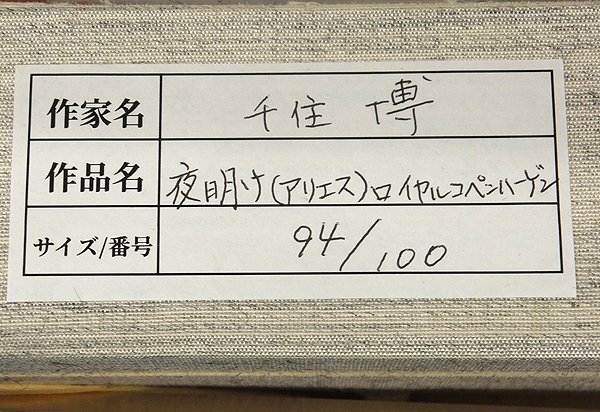 作家名 千住 博
作品名 夜明け(アリエス)ロイヤルコペンハーゲン
サイズ/番号 94/100